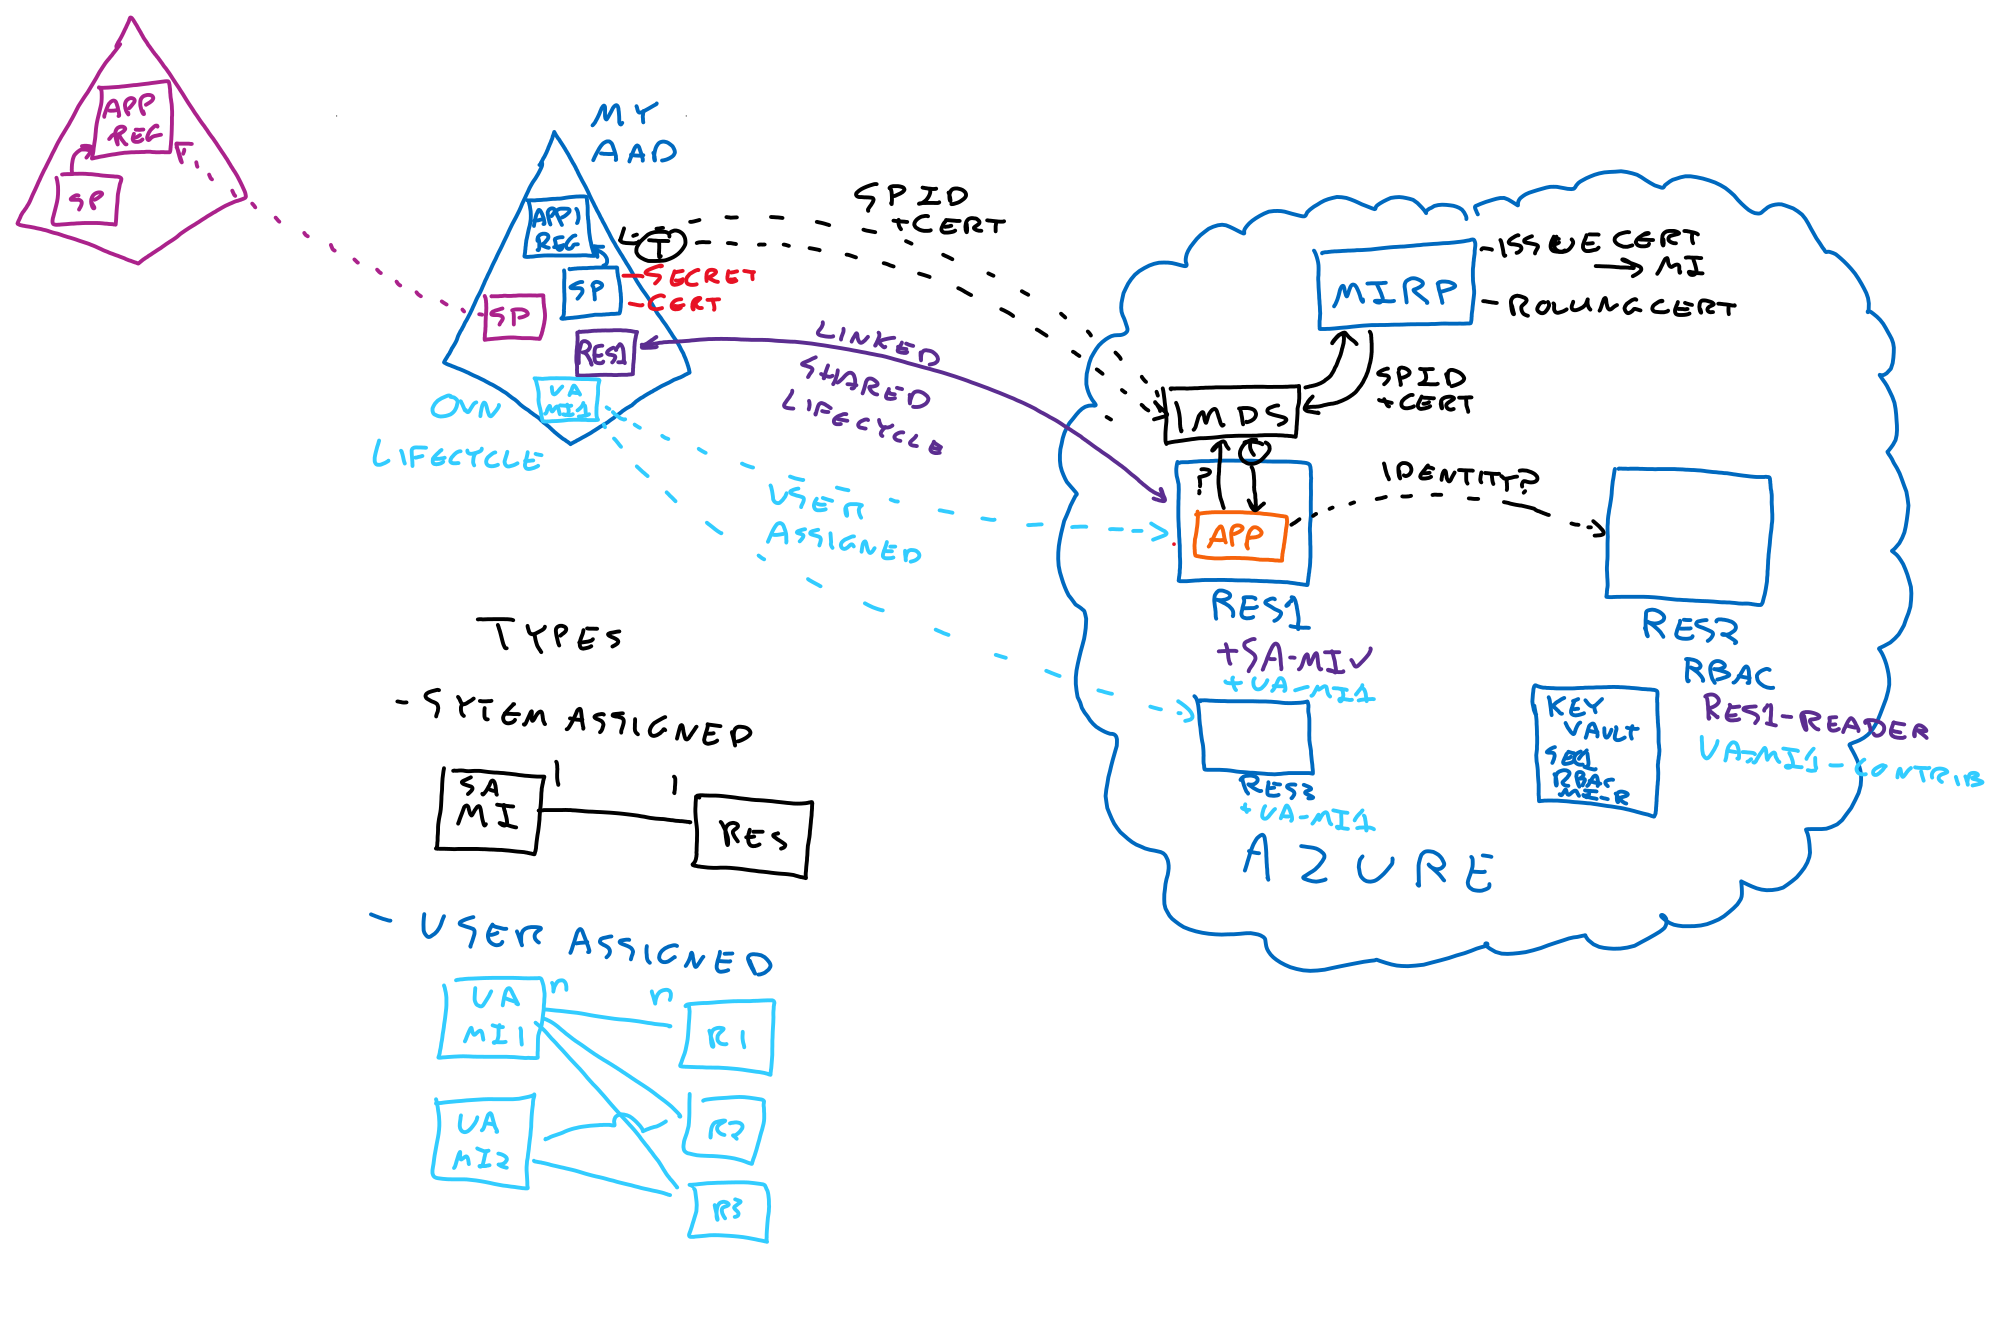 APP
REG
SP
MY
AAD
APP1
REG
SP
T
- SECRET
- CERT
SP
RES1
UA
MI1
OWN
LIFECYCLE
SPID
+CERT
LINKED
SHARED
LIFECYCLE
USER
ASSIGNED
MIRP
- ISSUE CERT
→ MI
- ROLLING CERT
SPID
+CERT
IMDS
?
T
APP
IDENTITY?
RES1
+SA-MI✓
+UA-MI1
RES2
RBAC
RES1-READER
UA-MI1-CONTRIB
KEY
VAULT
SEC1
RBAC
MI-R
RES3
+UA-MI1
AZURE
TYPES
- SYTEM ASSIGNED
SA
MI
1
1
RES
- USER ASSIGNED
UA
MI1
n
n
R1
UA
MI2
R2
R3